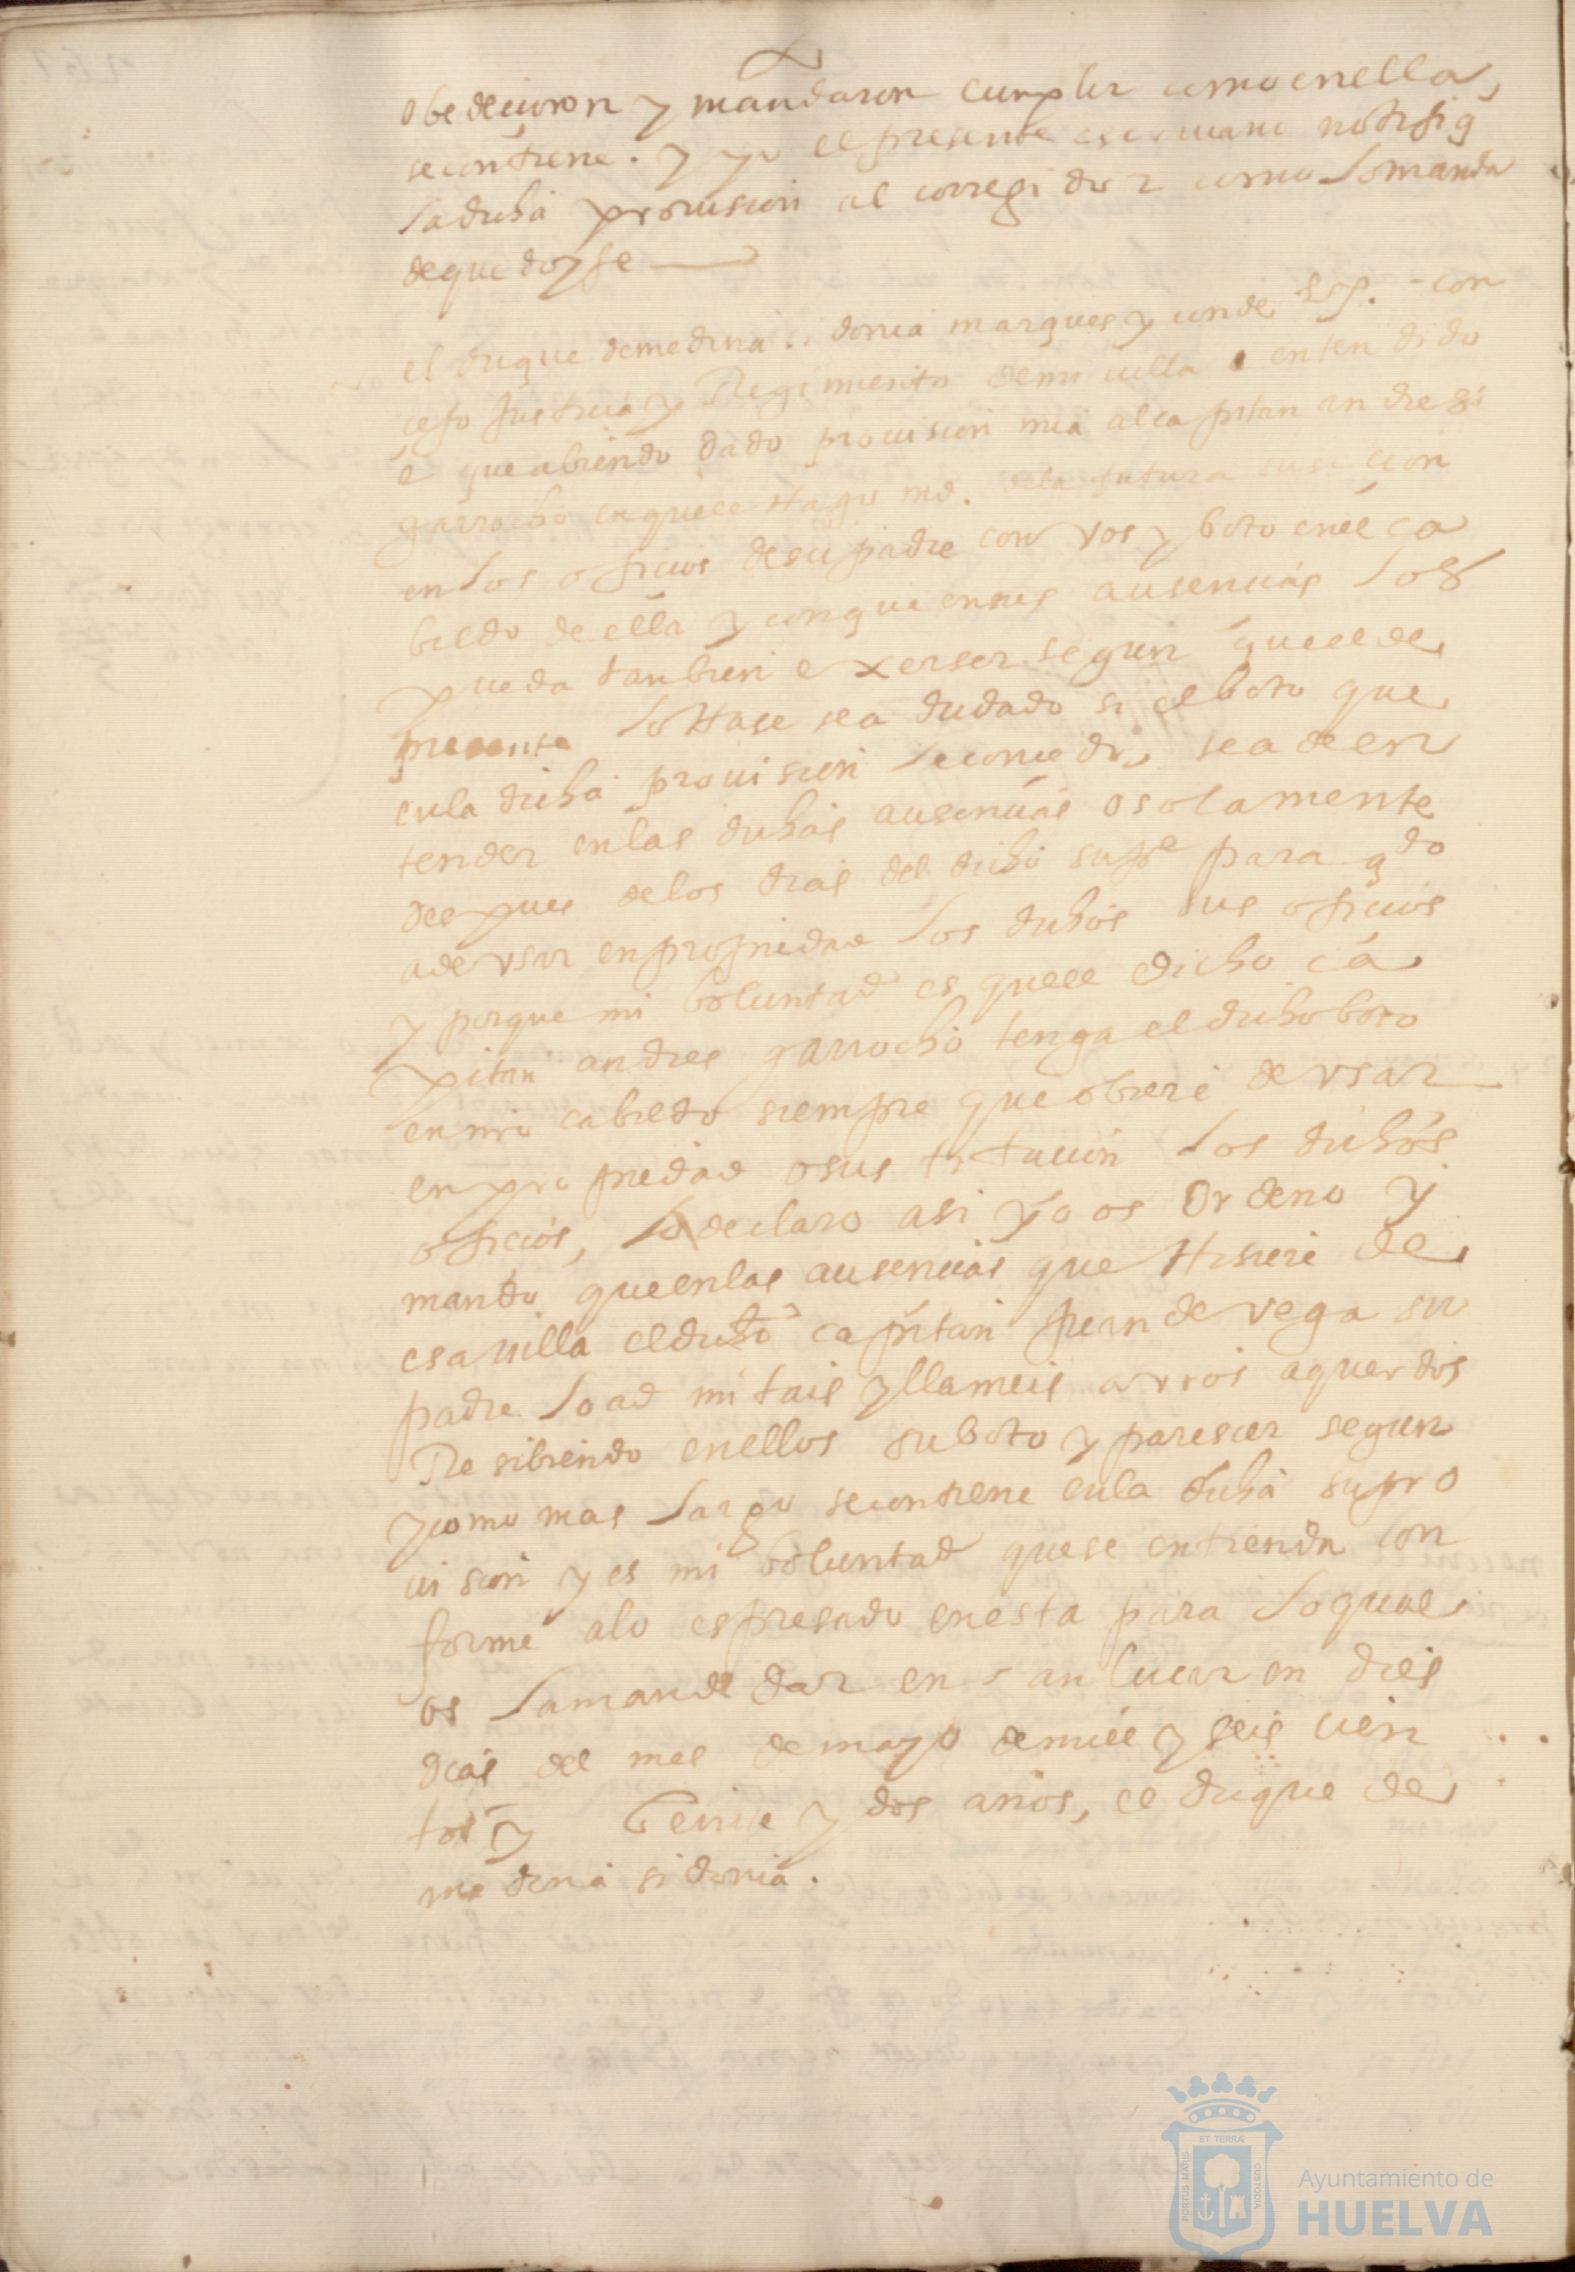 obedecieron y mandaron cumplir como en ella
se contiene. y yo el presente escriuano notifiq
la dicha prouision al corregidor como lo manda
de que doy fe
el duque de medina sidonia marques y conde con
cejo Justicia y Regimiento de mi uilla entendido
e que abiendo dado prouision mia al capitan andres
garrocho en que le Hago md. de la futura susecion
en los oficios de su padre con vos y boto en el ca
bildo de ella y con que en sus ausencias los
pueda tanbien exerser segun que el de
presente lo Hase se a dudado si el boto que
en la dicha prouision le concedo, se a de en
tender en las dichas ausencias o solamente
despues de los dias del dicho su pe para qdo
a de vsar en propiedad los dichos sus oficios
y porque mi boluntad es que el dicho ca
pitan andres garrocho tenga el dicho boto
en mi cabildo siempre que obiere de vsar
en propiedad o sustitucion los dichos
oficios, lo declaro asi y o os Ordeno y
mando que en las ausencias que Hisiere de
esa uilla el dicho capitan Juan de vega su
padre lo admitais y llameis a vros aquerdos
Resibiendo en ellos su boto y pareser segun
y como mas largo se contiene en la dicha su pro
uision y es mi boluntad que se entienda con
forme a lo espresado en esta para lo qual
os la mande dar en san lucar en dies
dias del mes de mayo de mill y seis cien
tos y beinte y dos años, el duque de
medina sidonia.
ET TERRÆ
PORTUS MARIS
CUSTODIA
Ayuntamiento de
HUELVA